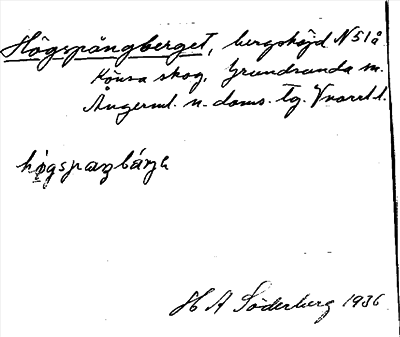 Högspångberget, bergshöjd N 51 å
Könsa skog, Grundsunda sn.
Ångerml. n. doms. tg. Vnorrl. l.
högspaŋbärjə
H A Söderberg 1936